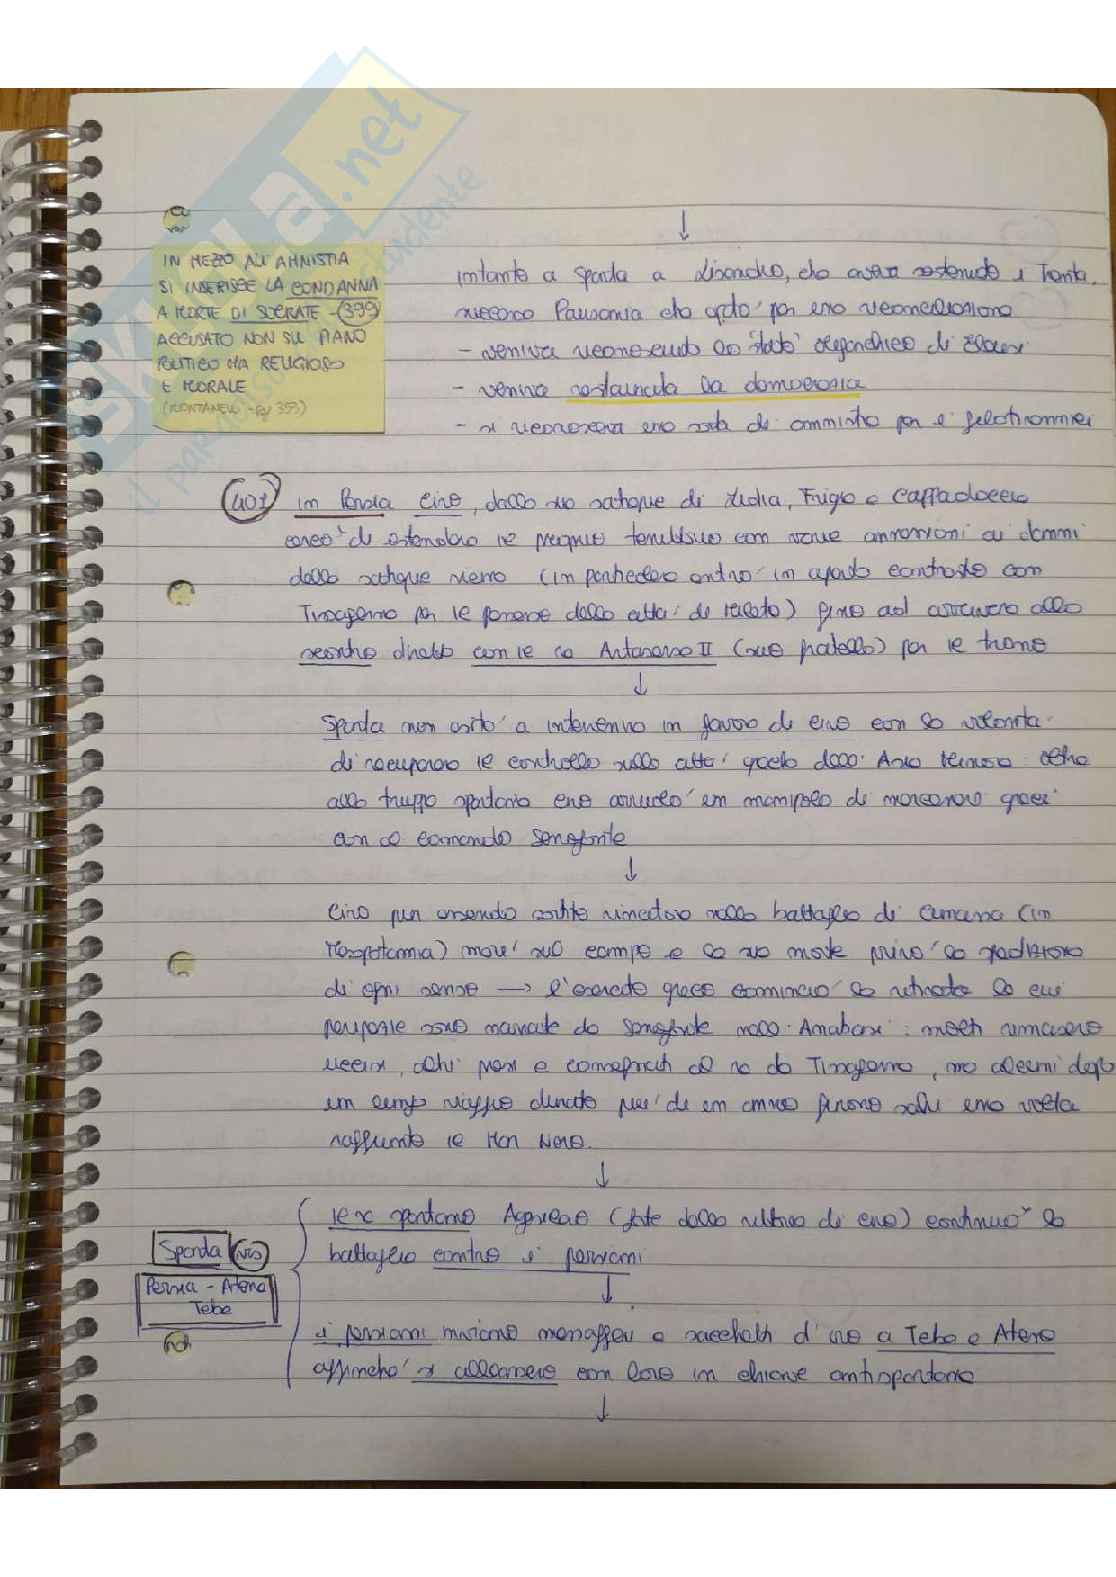 IN MEZZO ALL'AMNISTIA
SI INSERISCE LA CONDANNA
A MORTE DI SOCRATE - 399
ACCUSATO NON SU PIANO
POLITICO MA RELIGIOSO
E MORALE
(MONTANELLI - pg 353)
↓
intanto a Sparta a Lisandro, che aveva sostenuto i Trenta,
successe Pausania che optò per una riconciliazione
- veniva riconosciuto lo 'stato' oligarchico di Eleusi
- veniva restaurata la democrazia
- si riconosceva una sorta di amnistia per i filotirannici
401 in Persia Ciro, dalle sue satrapie di Lidia, Frigia e Cappadocia
cercò di estendere il proprio territorio con varie annessioni ai danni
delle satrapie vicine (in particolare entrò in aperto contrasto con
Tissaferne per il possesso della città di Mileto) fino ad arrivare allo
scontro diretto con il re Artaserse II (suo fratello) per il trono
↓
Sparta non esitò a intervenire in favore di Ciro con la volontà
di recuperare il controllo sulle città greche dell'Asia Minore: oltre
alle truppe spartane Ciro arruolò un manipolo di mercenari greci
con al comando Senofonte
↓
Ciro pur essendo uscito vincitore nella battaglia di Cunassa (in
Mesopotamia) morì sul campo e la sua morte privò la spedizione
di ogni senso → l'esercito greco cominciò la ritirata le cui
peripezie sono narrate da Senofonte nella Anabasi: molti rimasero
uccisi, altri presi e consegnati al re da Tissaferne, ma alcuni dopo
un lungo viaggio durato più di un anno furono salvi una volta
raggiunto il Mar Nero.
↓
Sparta VS
Persia - Atene
Tebe
il re spartano Agesilao (forte della vittoria di Ciro) continuò la
battaglia contro i persiani
↓
i persiani inviarono messaggeri e sacchetti d'oro a Tebe e Atene
affinché si alleassero con loro in chiave antispartana
↓